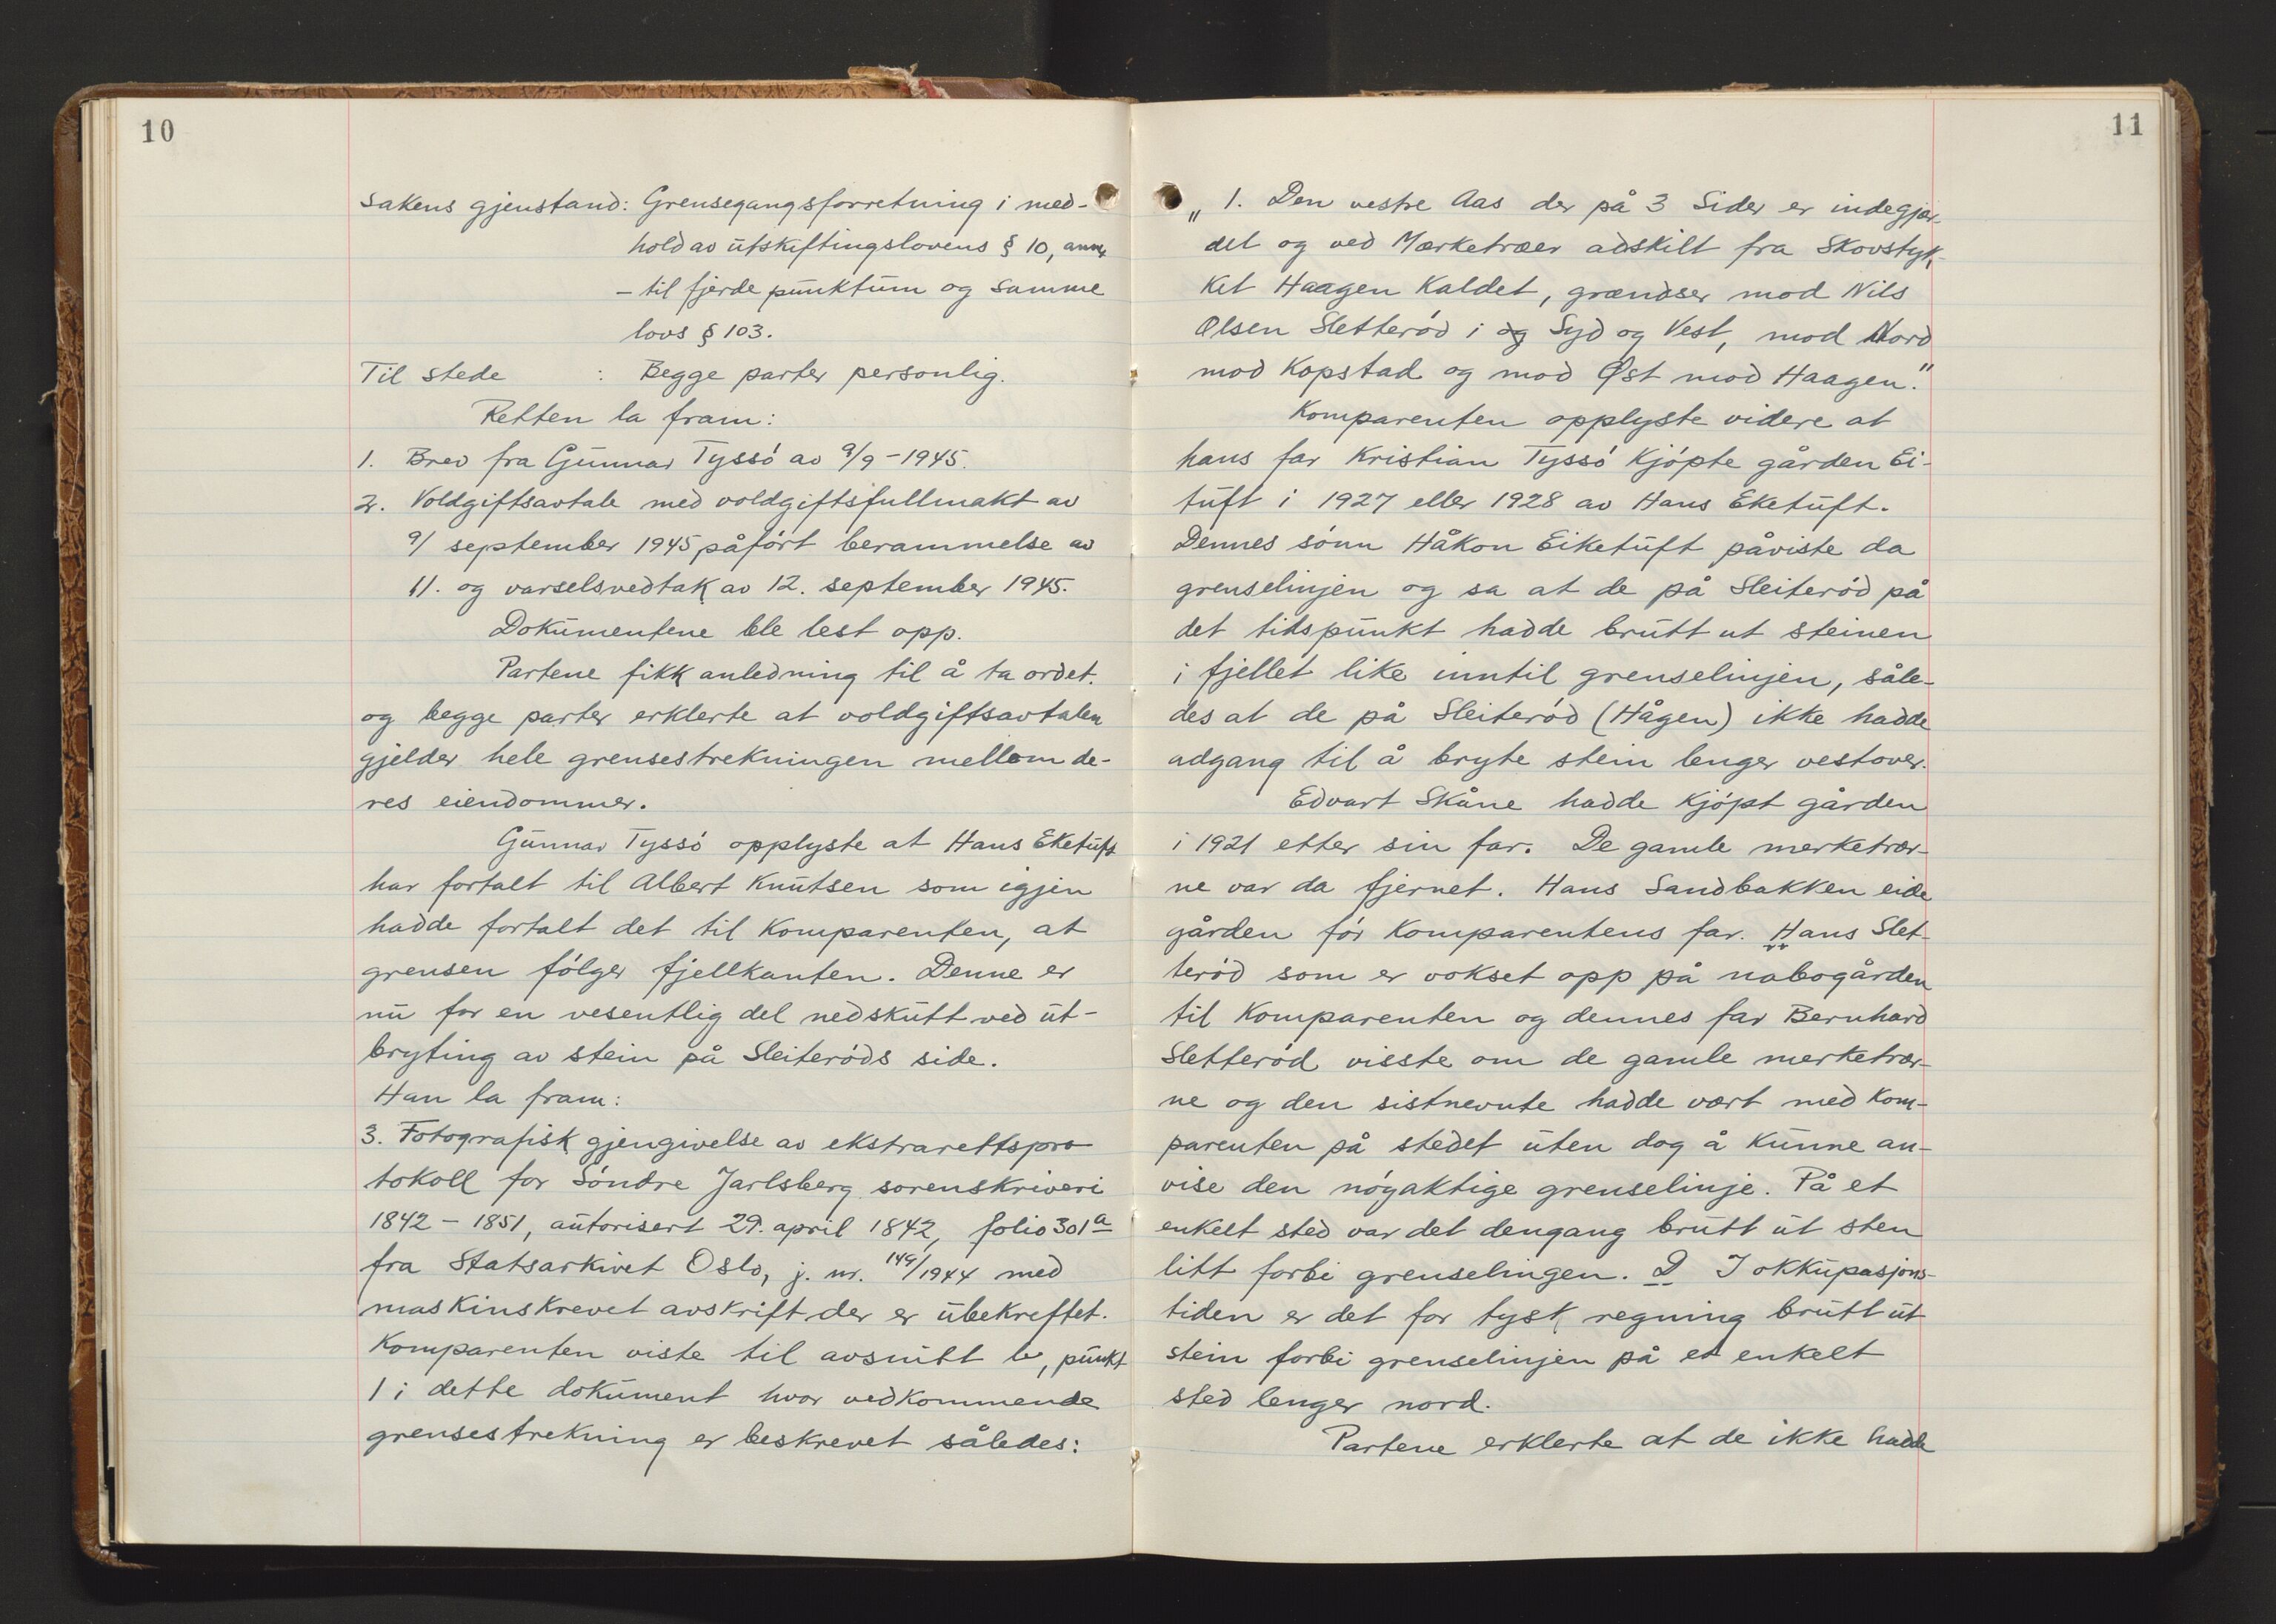 10
Sakens gjenstand: Grensegangsforretning i med-
hold av utskiftingslovens § 10, annet
- til fjerde punktum og samme
lovs § 103.
Til stede : Begge parter personlig.
Retten la fram:
1. Brev fra Gunnar Tyssó av 9/9-1945.
2. Voldgiftsavtale med voldgiftsfullmakt av
9/ september 1945 påfórt berammelse av
11. og varselsvedtak av 12. september 1945.
Dokumentene ble lest opp.
Partene fikk anledning til å ta ordet.
og begge parter erklerte at voldgiftsavtalen
gjelder hele grensestrekningen mellom de-
res eiendommer.
Gunnar Tyssó opplyste at Hans Eketuft
har fortalt til Albert Knutsen som igjen
hadde fortalt det til Komparenten, at
grensen fólger fjellkanten. Denne er
nu for en vesentlig del nedskutt ved ut-
bryting av stein på Sleiteróds side.
Han la fram:
3. Fotografisk gjengivelse av ekstrarettspro-
tokoll for Sóndre Jarlsberg sorenskriveri
1842 - 1851, autorisert 29. april 1842, folio 301a
fra Statsarkivet Oslo, j. nr. 149/1944 med
maskinskrevet avskrift der er ubekreftet.
Komparenten viste til avsnitt b, punkt
1 i dette dokument hvor vedkommende
grensestrekning er beskrevet således:
11
„ 1. Den vestre Aas der på 3 Sider er indegjær-
det og ved Mærketræer adskilt fra Skovstyk-
ket Haagen Kaldet, grændser mod Nils
Olsen Sletteród i og Syd og Vest, mod Nord
mod Kopstad og mod Øst mod Haagen."
Komparenten opplyste videre at
hans far Kristian Tyssó kjópte gården Ei-
tuft i 1927 eller 1928 av Hans Eketuft.
Dennes sónn Håkon Eiketuft påviste da
grenselinjen og sa at de på Sleiteród på
det tidspunkt hadde brutt ut steinen
i fjellet like inntil grenselinjen, såle-
des at de på Sleiteród (Hågen) ikke hadde
adgang til å bryte stein lenger vestover.
Edvart Skåne hadde kjópt gården
i 1921 etter sin far. De gamle merketrær-
ne var da fjernet. Hans Sandbakken eide
gården fór Komparentens far. Hans Slet-
teród som er vokset opp på nabogården
til Komparenten og dennes far Bernhard
Sletteród visste om de gamle merketrær-
ne og den sistnevnte hadde vært med Kom-
parenten på stedet uten dog å kunne an-
vise den nóyaktige grenselinje. På et
enkelt sted var det dengang brutt ut sten
litt forbi grenselingen. D I okkupasjons-
tiden er det for tysk regning brutt ut
stein forbi grenselinjen på et enkelt
sted lenger nord.
Partene erklerte at de ikke hadde